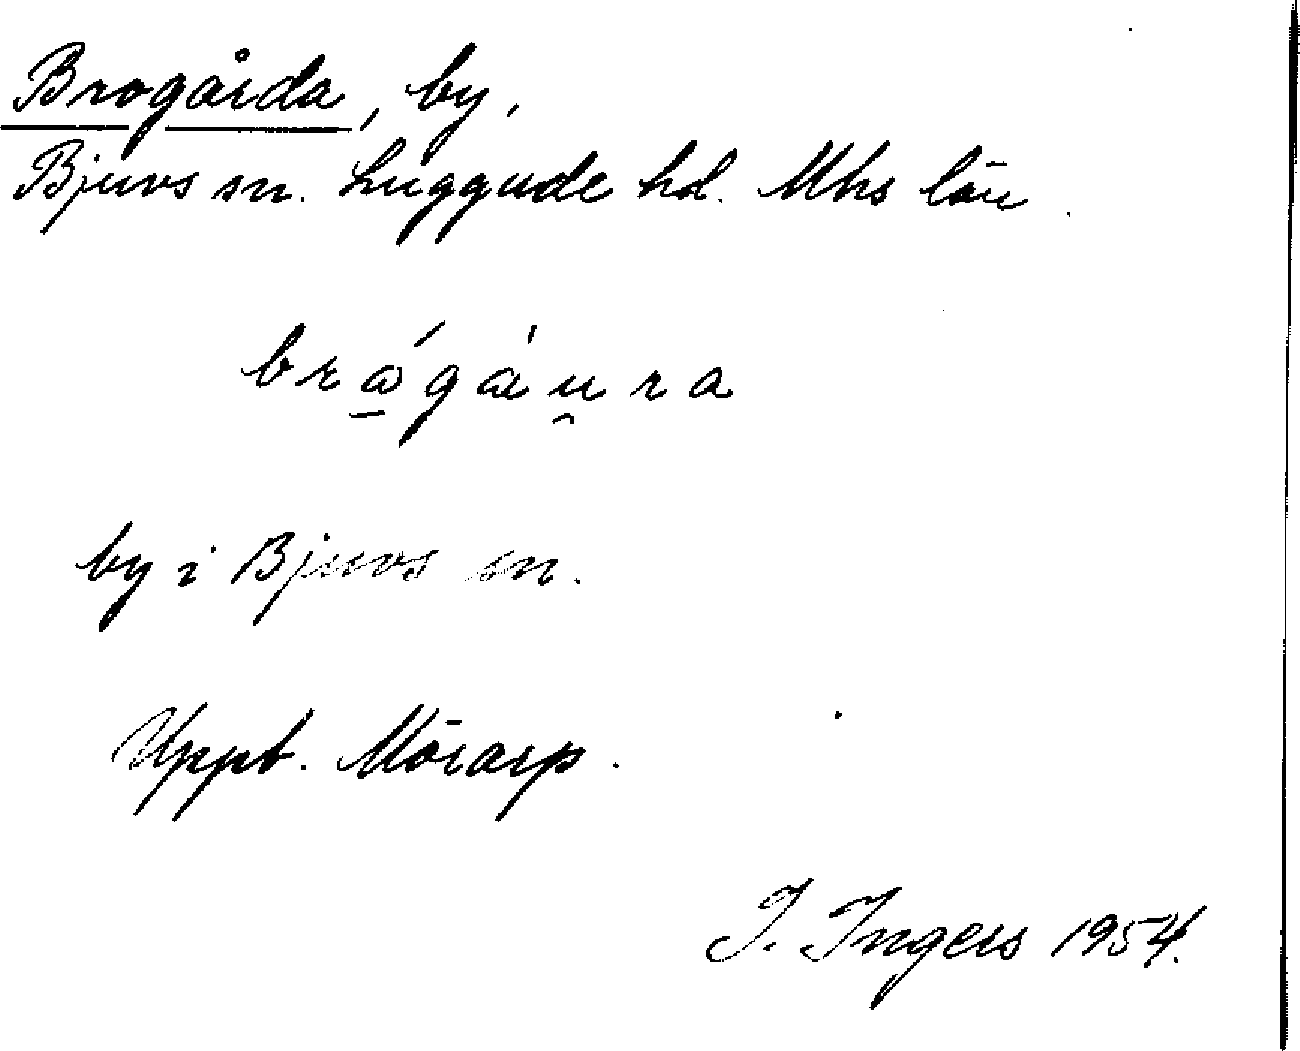 Brogårda, by,
Bjuvs sn. Luggude hd. Mhs län.
brώ̲gáu̯ra
by i Bjuvs sn.
Uppt. Mörarp.
I. Ingers 1954.